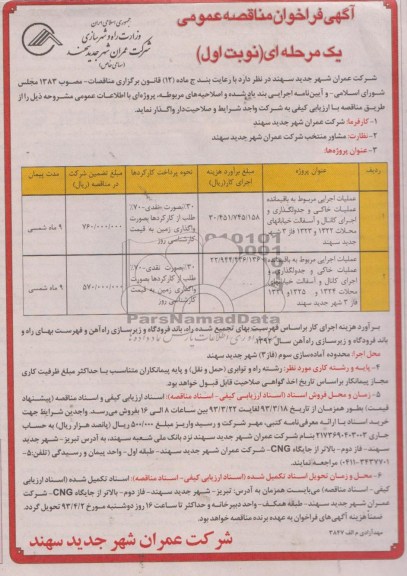 آگهی فراخوان مناقصه عمومی
یک مرحله ای (نوبت اول)
جمهوری اسلامی ایران
وزارت راه و شهرسازی
شرکت عمران شهر جدید سهند
(سهامی خاص)
شرکت عمران شهر جدید سهند در نظر دارد با رعایت بند ج ماده (۱۲) قانون برگزاری مناقصات- مصوب ۱۳۸۳ مجلس
شورای اسلامی- و آیین‌نامه اجرایی بند یاد شده و اصلاحیه‌های مربوطه، پروژه‌ای با اطلاعات عمومی مشروحه ذیل را از
طریق مناقصه با ارزیابی کیفی به شرکت واجد شرایط و صلاحیت‌دار واگذار نماید.
۱-کارفرما: شرکت عمران شهر جدید سهند
۲- نظارت: مشاور منتخب شرکت عمران شهر جدید سهند
۳-عنوان پروژه‌ها:
ردیف عنوان پروژه مبلغ برآورد هزینه اجرای کار(ریال) نحوه پرداخت کارکردها مبلغ تضمین شرکت در مناقصه (ریال) مدت پیمان
۱ عملیات اجرایی مربوط به باقیمانده عملیات خاکی و جدولگذاری و اجرای کانال و آسفالت خیابانهای محلات ۱۳۲۲ و ۱۳۲۳ فاز ۳ شهر جدید سهند ۳۰/۴۵۱/۷۴۵/۱۵۸ ۳۰٪بصورت نقدی-۷۰٪ طلب از کارکردها بصورت واگذاری زمین به قیمت کارشناسی روز ۷۶۰/۰۰۰/۰۰۰ ۹ ماه شمسی
۲ عملیات اجرایی مربوط به باقیمانده عملیات خاکی و جدولگذاری و اجرای کانال و آسفالت خیابانهای محلات ۱۳۲۴ و ۱۳۲۵ و فاز ۳ شهر جدید سهند ۳۰٪بصورت نقدی-۷۰٪ طلب از کارکردها بصورت واگذاری زمین به قیمت کارشناسی روز ۵۷۰/۰۰۰/۰۰۰ ۹ ماه شمسی
ParsNamadData
برآورد هزینه اجرای کار براساس فهرست بهای تجمیع شده راه، باند فرودگاه و زیرسازی راه‌آهن و فهرست بهای راه و
باند فرودگاه و زیرسازی راه‌آهن سال ۱۳۹۲
محل اجرا: محدوده آماده‌سازی سوم (فاز۳) شهر جدید سهند
۴- پایه و رشته کاری مورد نظر: رشته راه و ترابری (حمل و نقل) و پایه پیمانکاران متناسب با حداکثر مبلغ ظرفیت کاری
مجاز پیمانکار براساس تاریخ اخذ گواهی صلاحیت قابل قبول خواهد بود.
۵- زمان و محل فروش اسناد (اسناد ارزیابی کیفی- اسناد مناقصه): اسناد ارزیابی کیفی و اسناد مناقصه (پیشنهاد
قیمت) بطور همزمان از تاریخ ۹۳/۳/۱۸ لغایت ۹۳/۳/۲۲ بین ساعات ۸ الی ۱۶ بفروش می‌رسد. واجدین شرایط جهت
خرید اسناد با ارائه معرفی‌نامه کتبی، مهر شرکت و رسید واریز مبلغ ۵۰۰/۰۰۰ ریال (پانصد هزار ریال) به حساب
جاری ۲۱۷۳۶۹۰۴۰۳۰۰۲ بنام شرکت عمران شهر جدید سهند نزد بانک ملی شعبه سهند، به آدرس تبریز- شهر جدید
سهند- فاز دوم- بالاتر از جایگاه CNG- شرکت عمران شهر جدید سهند- طبقه اول- واحد پیمان و رسیدگی (تلفن:۵-
۰۴۱۱-۳۴۳۷۷۰۱) مراجعه نمایند.
۶-محل و زمان تحویل اسناد تکمیل شده (اسناد ارزیابی کیفی- اسناد مناقصه): اسناد تکمیل شده (اسناد ارزیابی
کیفی- اسناد مناقصه) می‌بایست همزمان به آدرس: تبریز- شهر جدید سهند- فاز دوم- بالاتر از جایگاه CNG- شرکت
عمران شهر جدید سهند- طبقه همکف- واحد دبیرخانه و حداکثر تا ساعت ۱۶ روز دوشنبه مورخ ۹۳/۴/۲ تحویل گردد.
ضمنا هزینه آگهی‌های فراخوان به عهده برنده مناقصه خواهد بود.
شرکت عمران شهر جدید سهند